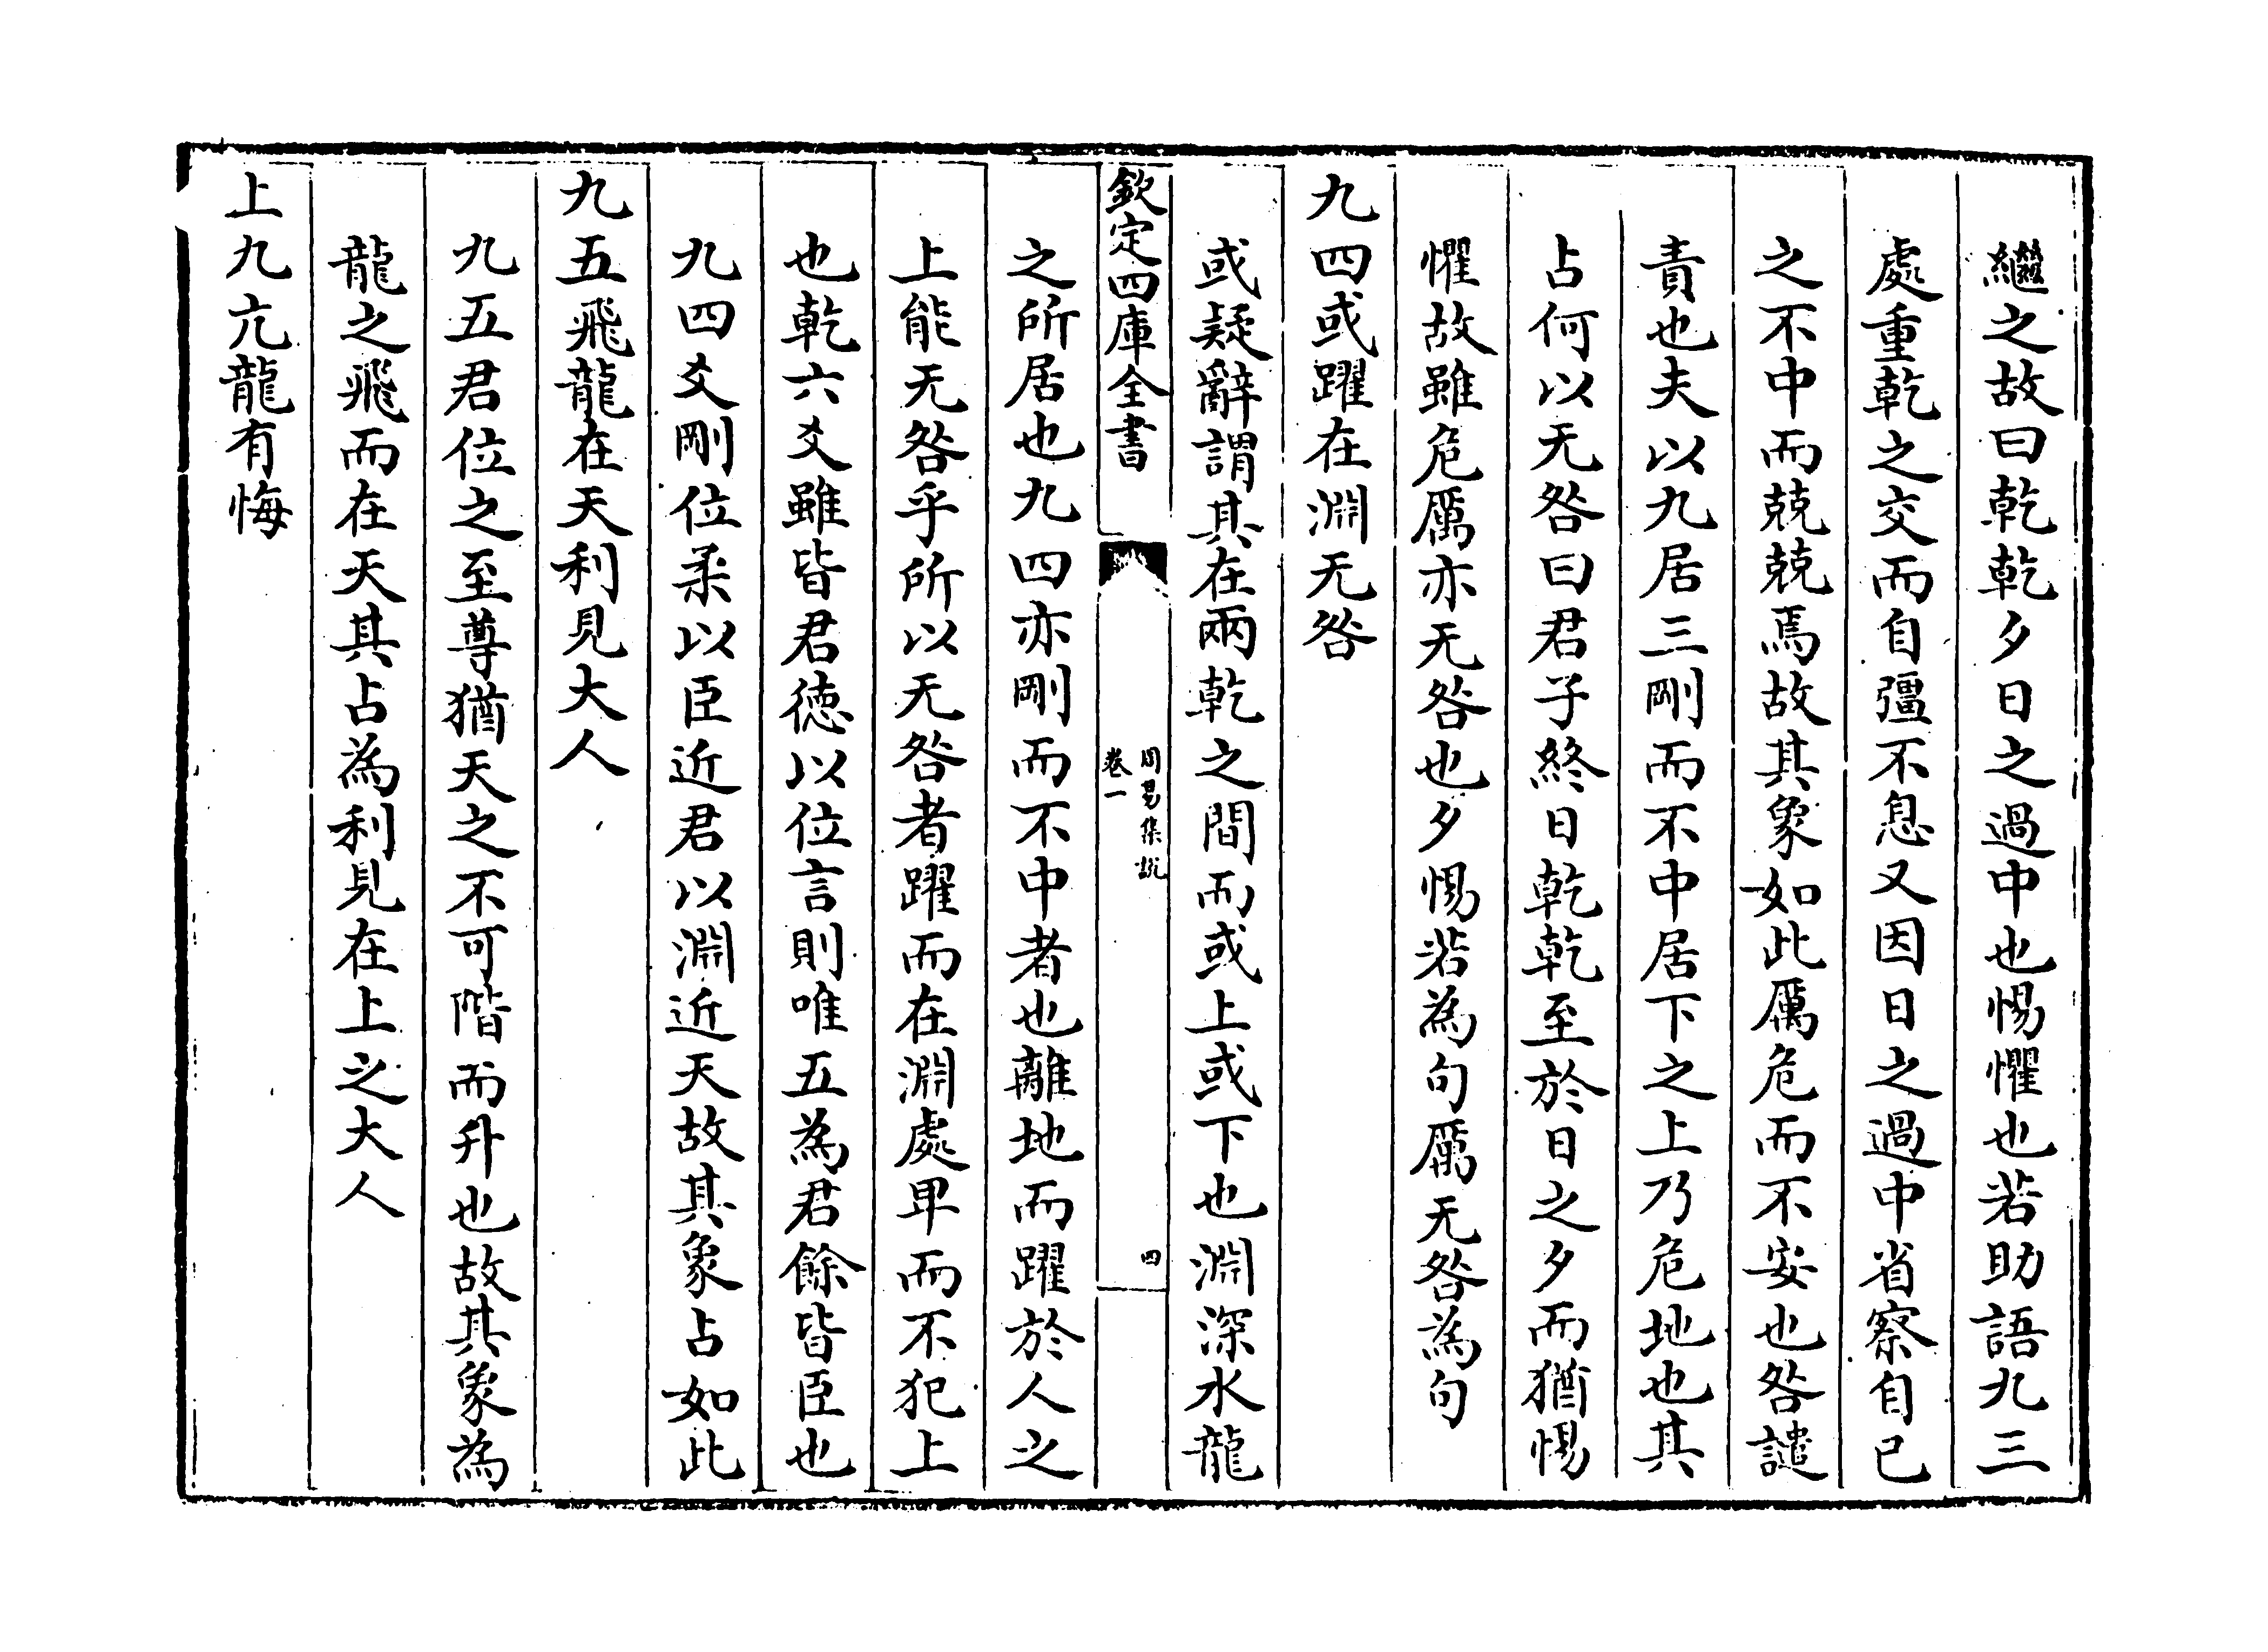 繼之故曰乾乾夕日之過中也惕懼也若助語九三
處重乾之交而自彊不息又因日之過中省察自已
之不中而兢兢焉故其象如此厲危而不安也咎譴
責也夫以九居三剛而不中居下之上乃危地也其
占何以无咎曰君子終日乾乾至於日之夕而猶惕
懼故雖危厲亦无咎也夕惕若為句厲无咎為句
九四或躍在淵无咎
或疑辭謂其在兩乾之間而或上或下也淵深水龍
欽定四庫全書
周易集說
卷一
四
之所居也九四亦剛而不中者也離地而躍於人之
上能无咎乎所以无咎者躍而在淵處卑而不犯上
也乾六爻雖皆君徳以位言則唯五為君餘皆臣也
九四爻剛位柔以臣近君以淵近天故其象占如此
九五飛龍在天利見大人
九五君位之至尊猶天之不可階而升也故其象為
龍之飛而在天其占為利見在上之大人
上九亢龍有悔